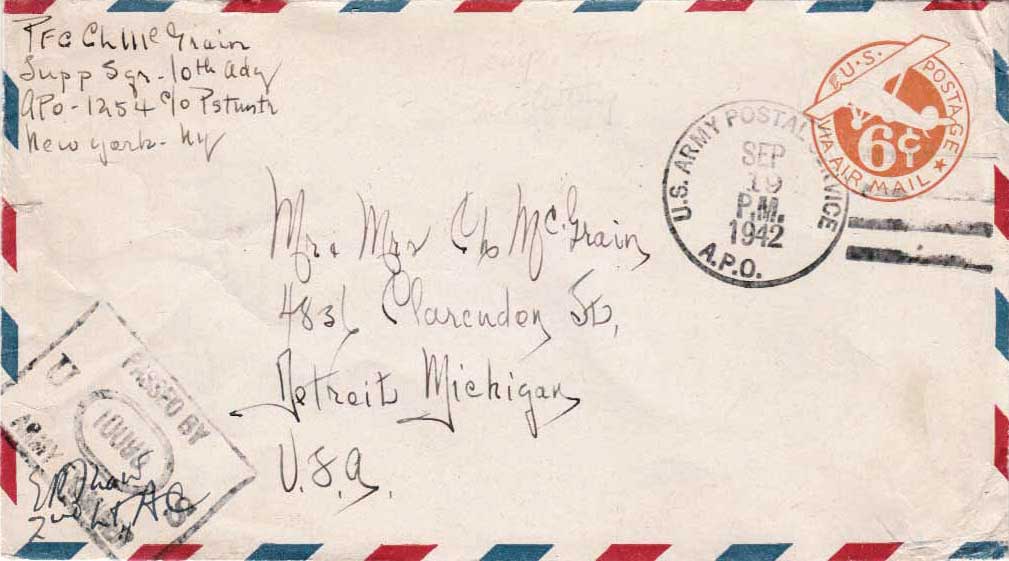 PFC Ch McGrain
Supp Sqr - 10th Adg
APO - 1254 c/o Pstmstr
New york - Ny
U.S. POSTAGE
6¢
VIA AIR MAIL
U.S. ARMY POSTAL SERVICE
SEP
19
P.M.
1942
A.P.O.
Mr. Mrs Ch McGrain
4836 Clarenden St,
Detroit Michigan
U.S.A.
PASSED BY
U S
ARMY
2nd Lt, A.C.